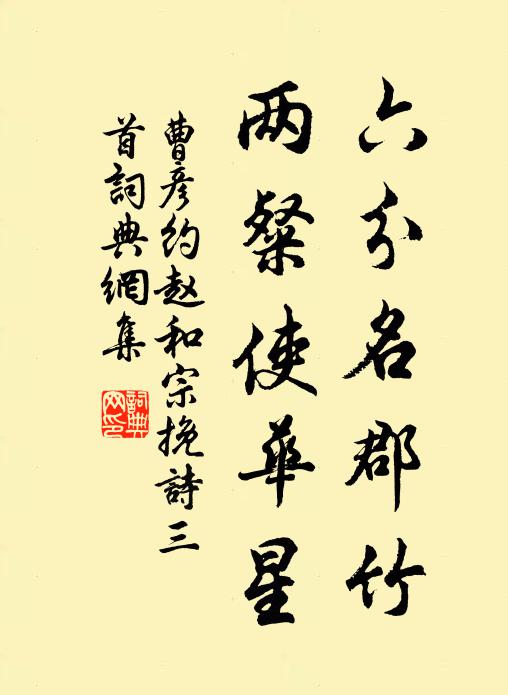 六分名郡竹
两粲使华星
曹彦约赵和宗挽詩三
首詞典網集
詞典
网印